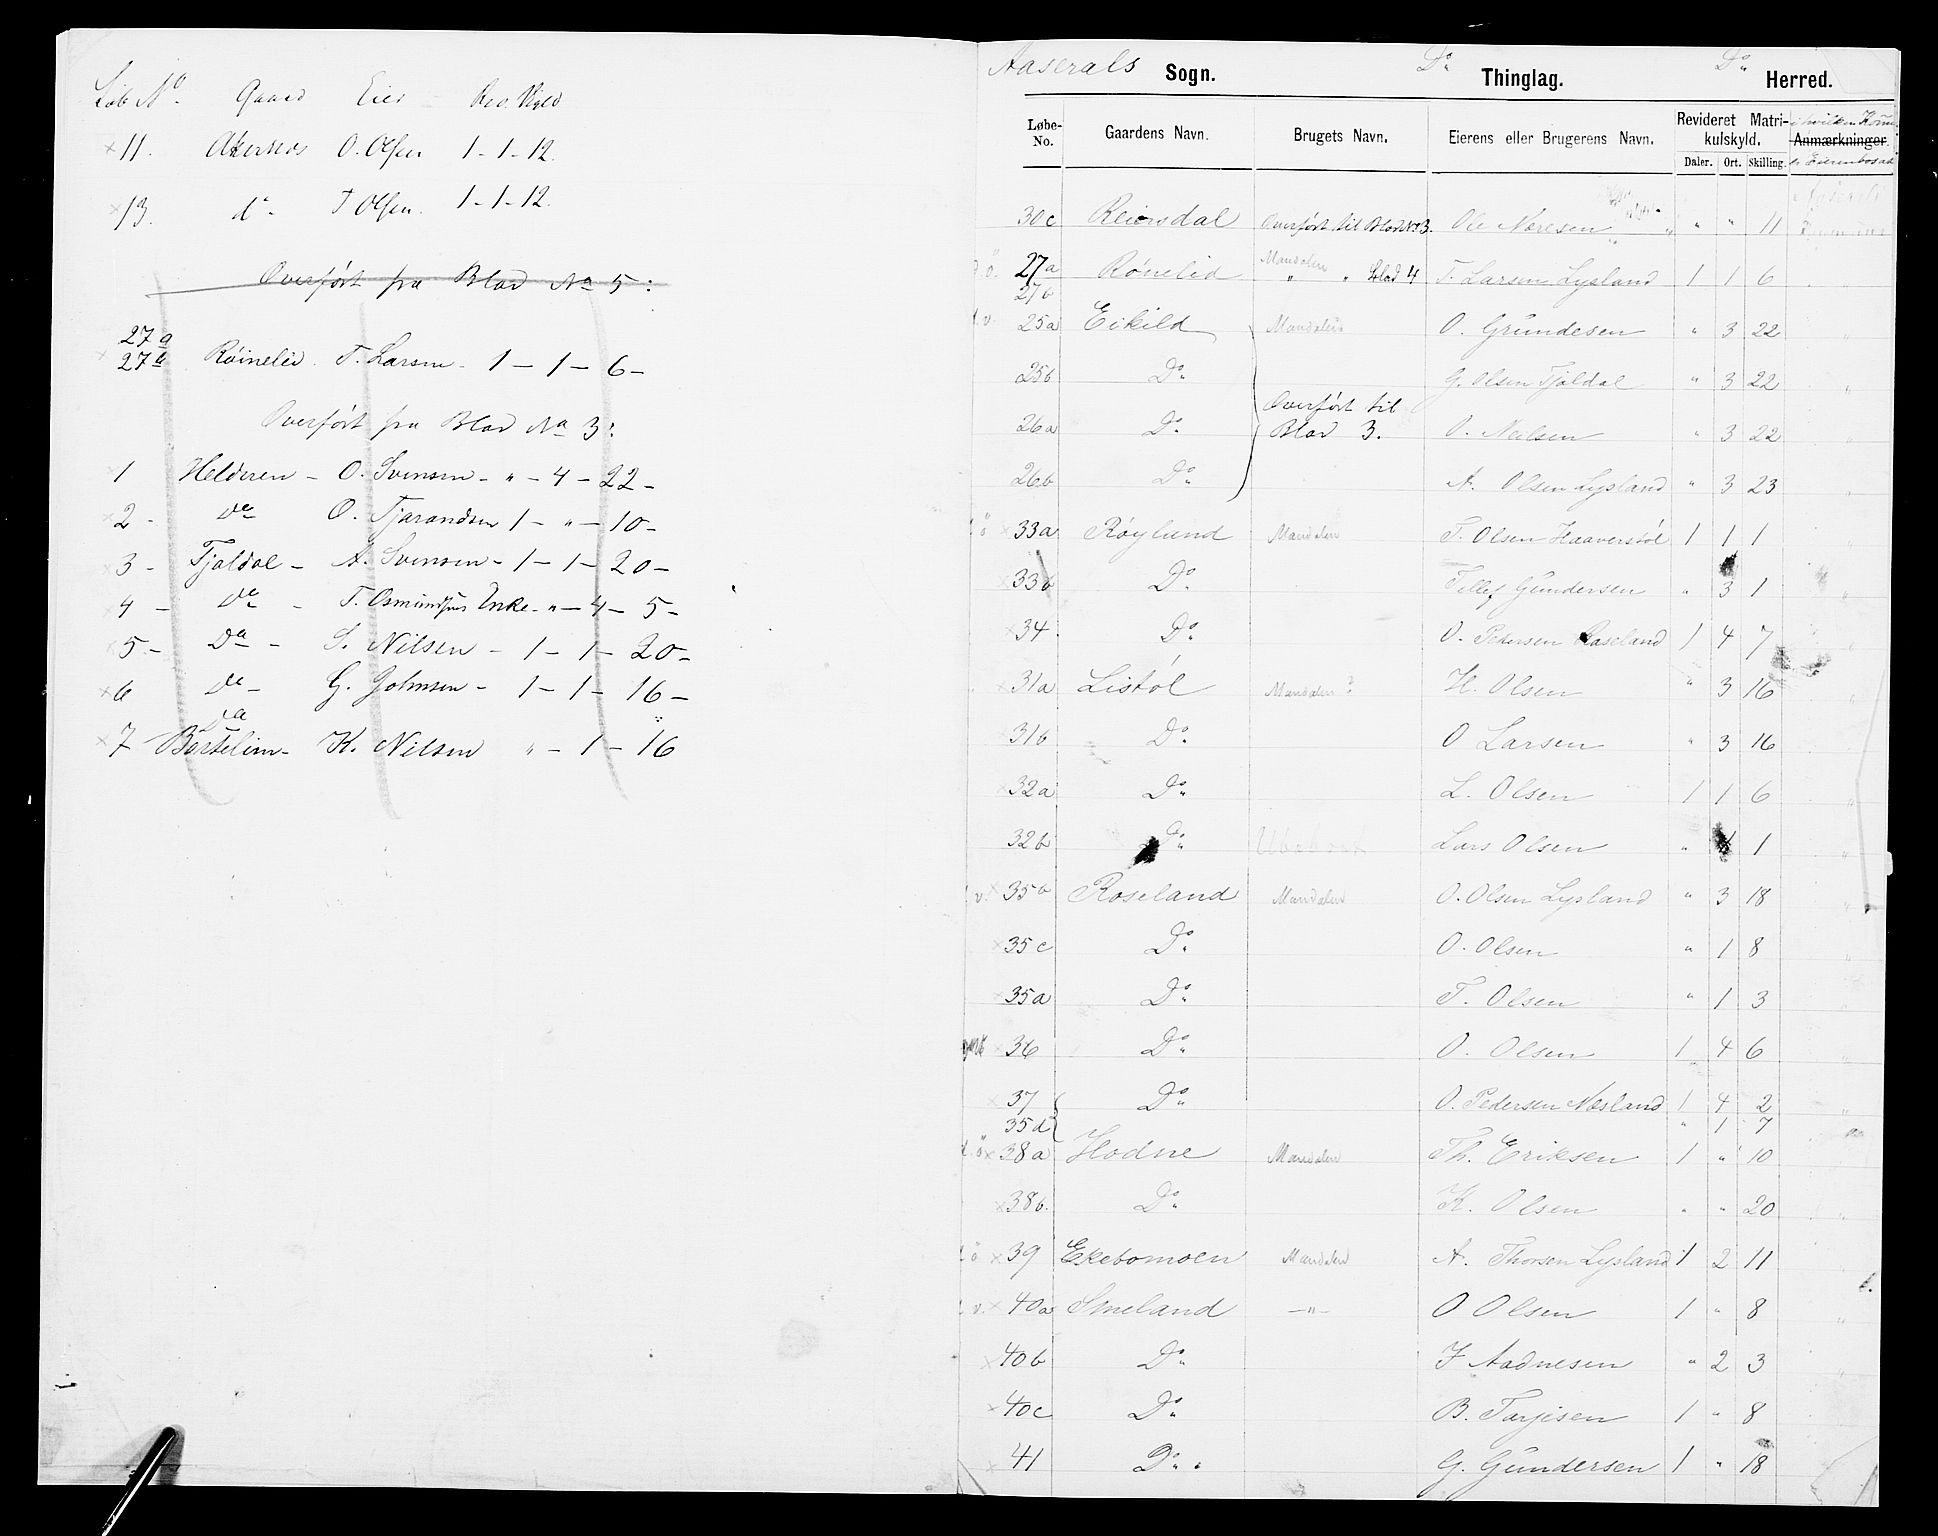 Løb No. Gaard Eier Rev. Skyld
11. Akersnes O. Olsen 1 - 1 - 12.
13. do - T Olsen. 1 - 1 - 12.
Overført fra Blad No 5:
27a
27b Röinelid. T. Larsen - 1 - 1 - 6 -
Overført fra Blad No 3:
1 Helderen - O. Svensen - " - 4 - 22 -
2 - Do O. Tjarandsen 1 - " - 10 -
3 - Tjaldal - A. Svensen - 1 - 1 - 20 -
4 - Do - T. Osmundsens Enke - " - 4 - 5 -
5 - Do - S. Nilsen - 1 - 1 - 20 -
6 Do - G. Johnsen - 1 - 1 - 16 -
Do
7 Bortelim - K. Nilsen " - 1 - 16
Aaserals Sogn. Do Thinglag. Do Herred.
Løbe-No. Gaardens Navn. Brugets Navn. Eierens eller Brugerens Navn. Revideret Matrikulskyld. Daler. Ort. Skilling. i hvilken Kom: Anmærkninger. er Eieren bosad
30c Reiersdal Overført til Blad No 3. Ole Næresen " " 11
27a Rönelid Mandalen " " Blad 4 T. Larsen Lysland 1 1 6
27b
25a Eikild Mandalen O. Gundesen " 3 22
25b Do G. Olsen Tjaldal " 3 22
26a Do Overført til Blad 3. O. Neilsen " 3 22
26b Do A. Olsen Lysland " 3 23
33a Röylund Mandalen T. Olsen Haaverstöl 1 1 1
33b Do Tellef Gundersen " 3 1
34 Do O. Pedersen Raseland 1 4 7
31a Listöl Mandalen ? H. Olsen " 3 16
31b Do O Larsen " 3 16
32a Do L. Olsen 1 1 6
32b Do Lars Olsen " 1
v. 35b Roseland Mandalen O. Olsen Lysland " 3 18
35c Do O. Olsen " 1 8
35a Do T. Olsen " 1 3
36 Do O. Olsen 1 4 6
37 Do O. Pedersen Næsland 1 4 2
35d " 1 7
38a Hodne Mandalen Th. Eriksen 1 " 10
38b. Do K. Olsen " " 20
39 Ekebomoen Mandalen A. Thorsen Lysland 1 2 11
v. 40a Smeland -"- O Olsen 1 " 8
40b Do J Aadnesen " 2 3
40c Do B. Tarjesen 1 " 8
41 Do G. Gundersen 1 " 18